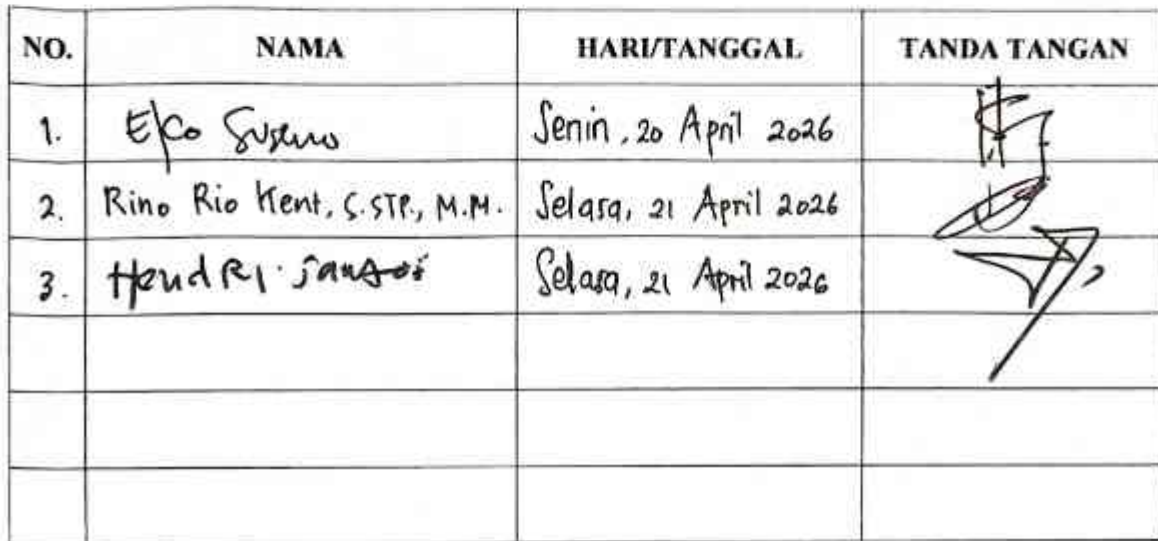 NO. NAMA HARI/TANGGAL TANDA TANGAN
1. Eko Suseno Senin, 20 April 2026
2. Rino Rio Kent, S.STP., M.M. Selasa, 21 April 2026
3. Hendri Selasa, 21 April 2026